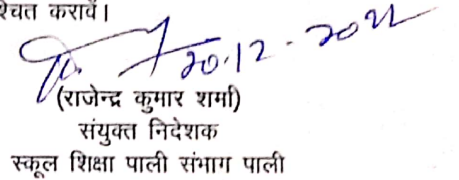 श्चित करावें।
20.12.2022
(राजेन्द्र कुमार शर्मा)
संयुक्त निदेशक
स्कूल शिक्षा पाली संभाग पाली